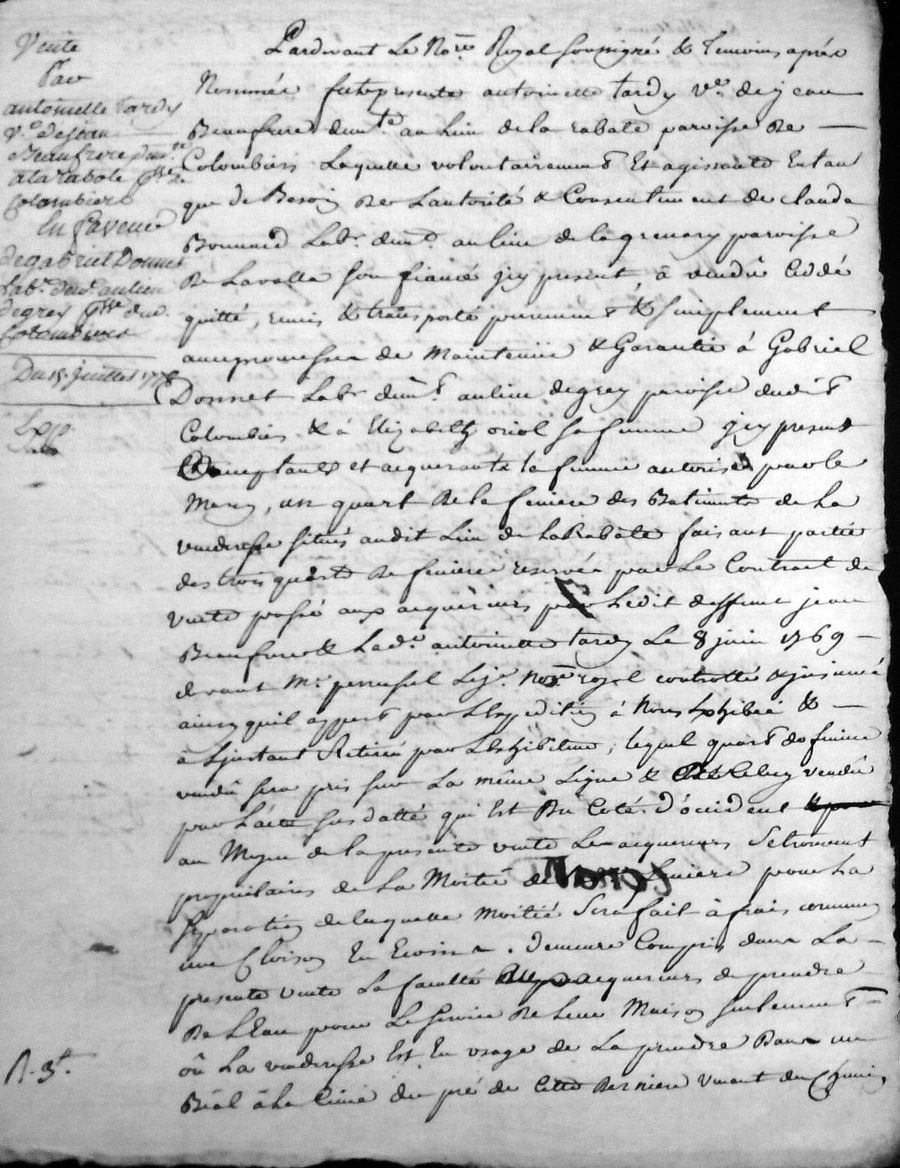 Vente
Par
antoinette tardy
Ve. de jean
Beaufrere dmte.
a la rabote psse. de
Colombiers
En faveur
de gabriel Donnet
Labr. dmt. au lieu
de grey psse. dud.
Colombiers
Du 15 juillet 1778
Pardevant Le Nore. Royal soussigné & Temoins aprés
Nommés fut presente antoinette tardy Ve. de jean
Beaufrere dmte. au Lieu de la rabate parroisse De
Colombiers Laquelle volontairement Et agissante En tan
que de Besoin De Lautorité & Consentiment de claude
Bonnard Labr. dmt. au lieu de la grenary parroisse
De Lavalla son fiancé jcy present à vendû Cèdé
quitté, remis & transporté purement & simplement
avec promesse de Maintenir & Garantir à Gabriel
Donnet Labr. dmt. au lieu de grey paroisse dudit
Colombiers & à Elizabeth oriol sa femme jcy present
acceptants et acquerants la femme autorisée par le
Mary, un quart De la feniere des Batiments de La
venderesse situés audit Lieu de La Rabate faisant partie
des trois quarts De feniere reservée par Le Contract de
vente passé aux acquéreurs par Ledit deffunt jean
Beaufrere & Lade. antoinette tardy Le 8 juin 1769
devant Me. perrussel Lejne. Nore. royal controllé & jnsinué
ainsy quil appert par L'Expedition à Nous Exhibée &
à Ljnstant Retirée par L'Exhibiteur, lequel quart de feniere
vendû sera pris sur La même Ligne & Celuy vendû
par L'acte susdatté qui Est Du Coté D'occident
au Moyen de la presente vente Les acquereurs Se trouvent
proprietaires de La Moitié de feniere pour La
Separation de laquelle moitié Sera fait à frais communs
une Cloison En Ecoins. Demeure Compris dans La
presente vente La faculté acquereurs de prendre
De L'Eau pour Le Service De Leur Maison seulement
où La venderesse Est En usage de La prendre Dans un
Béal à La Cime du pré de Cette Derniere venant du Chemin
R. 3t.